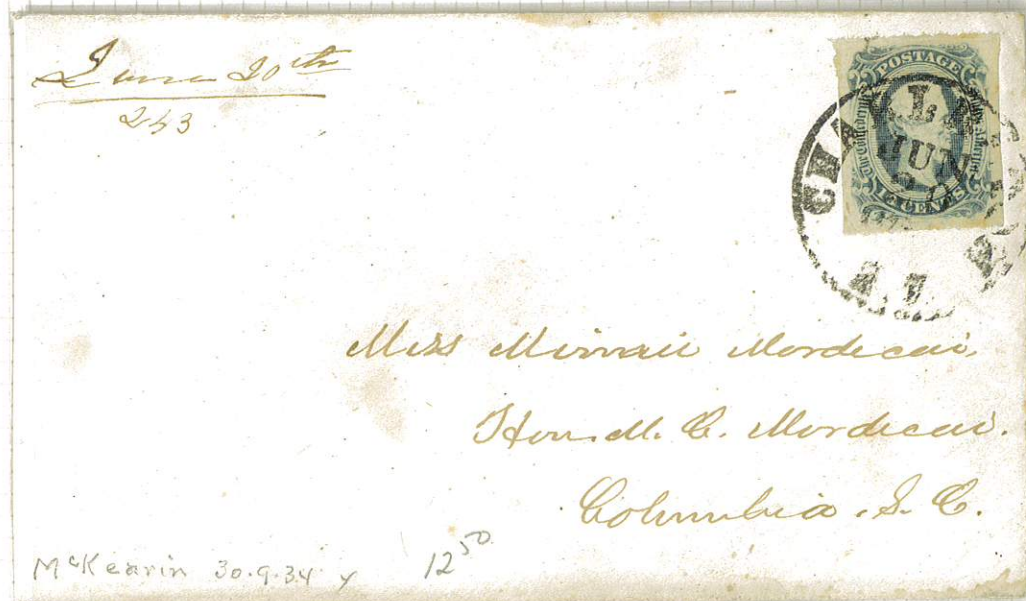 June 20th
253
POSTAGE
The Confederate States of America
CENTS
CHARL
JUN
20
Miss Minnaii Mordecai,
Hon. M. C. Mordecai.
Columbia. S. C.
McKearin 30.9.34 y 12 50